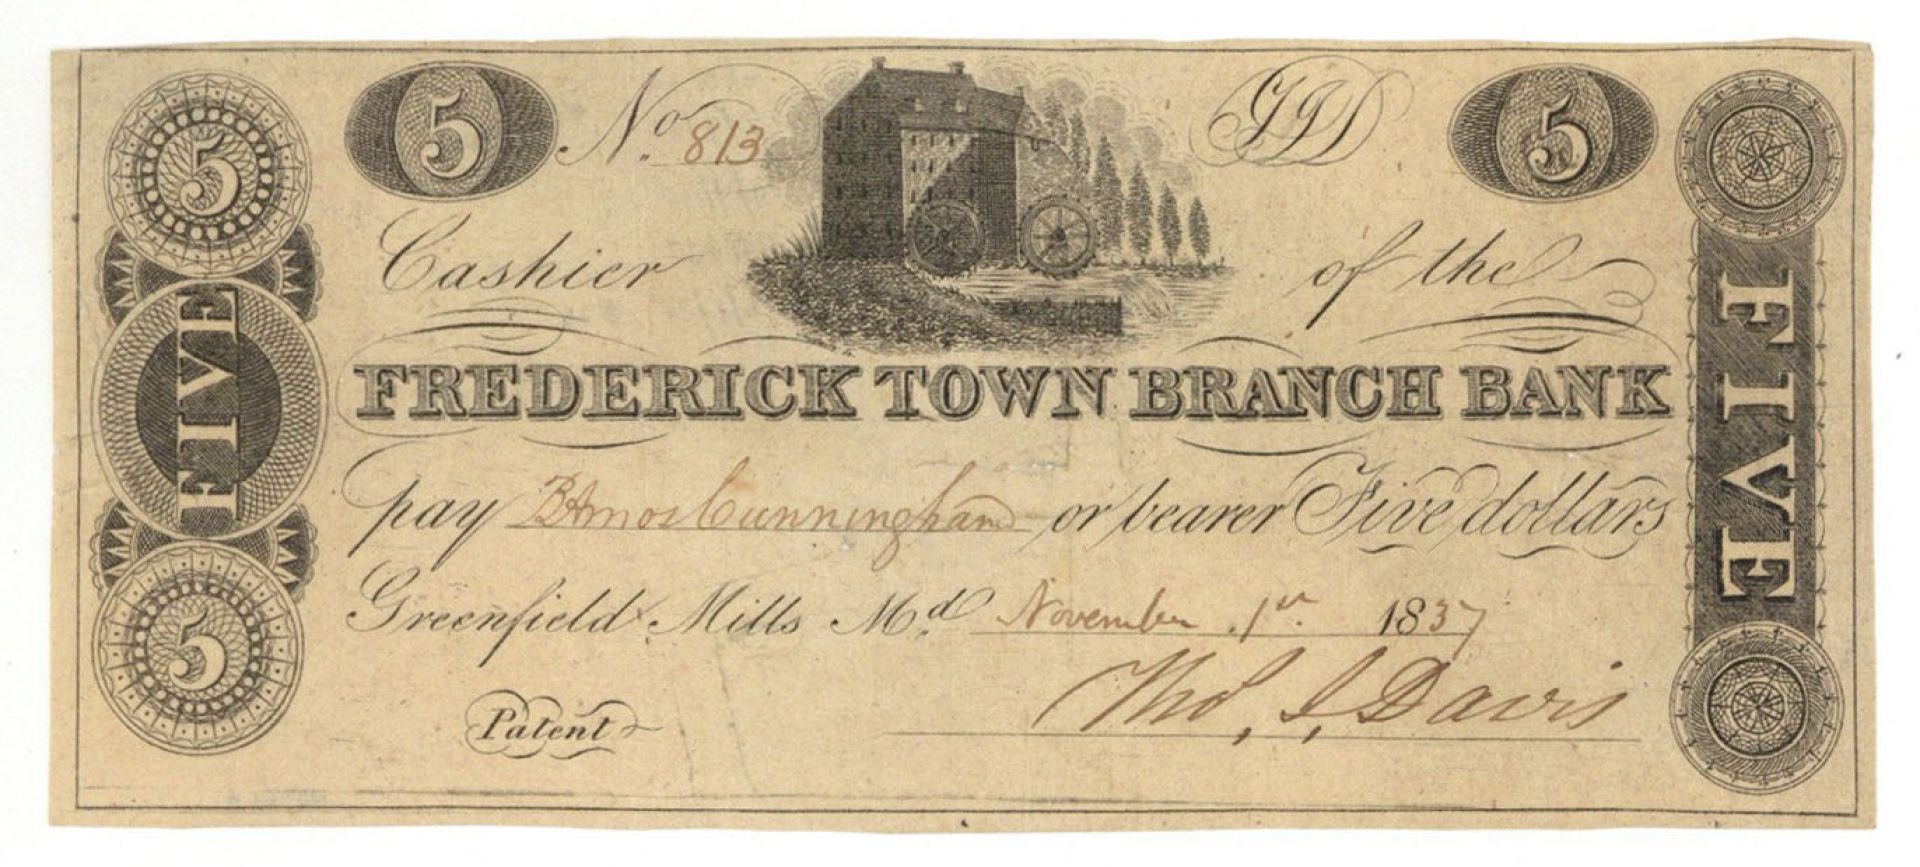 5 No. 813 5
5
Cashier of the
FIVE
FREDERICK TOWN BRANCH BANK
FIVE
pay Amos Cunningham or bearer Five dollars
Greenfield Mills Md. November 1st 1837
5
Tho. J. Davis
Patent